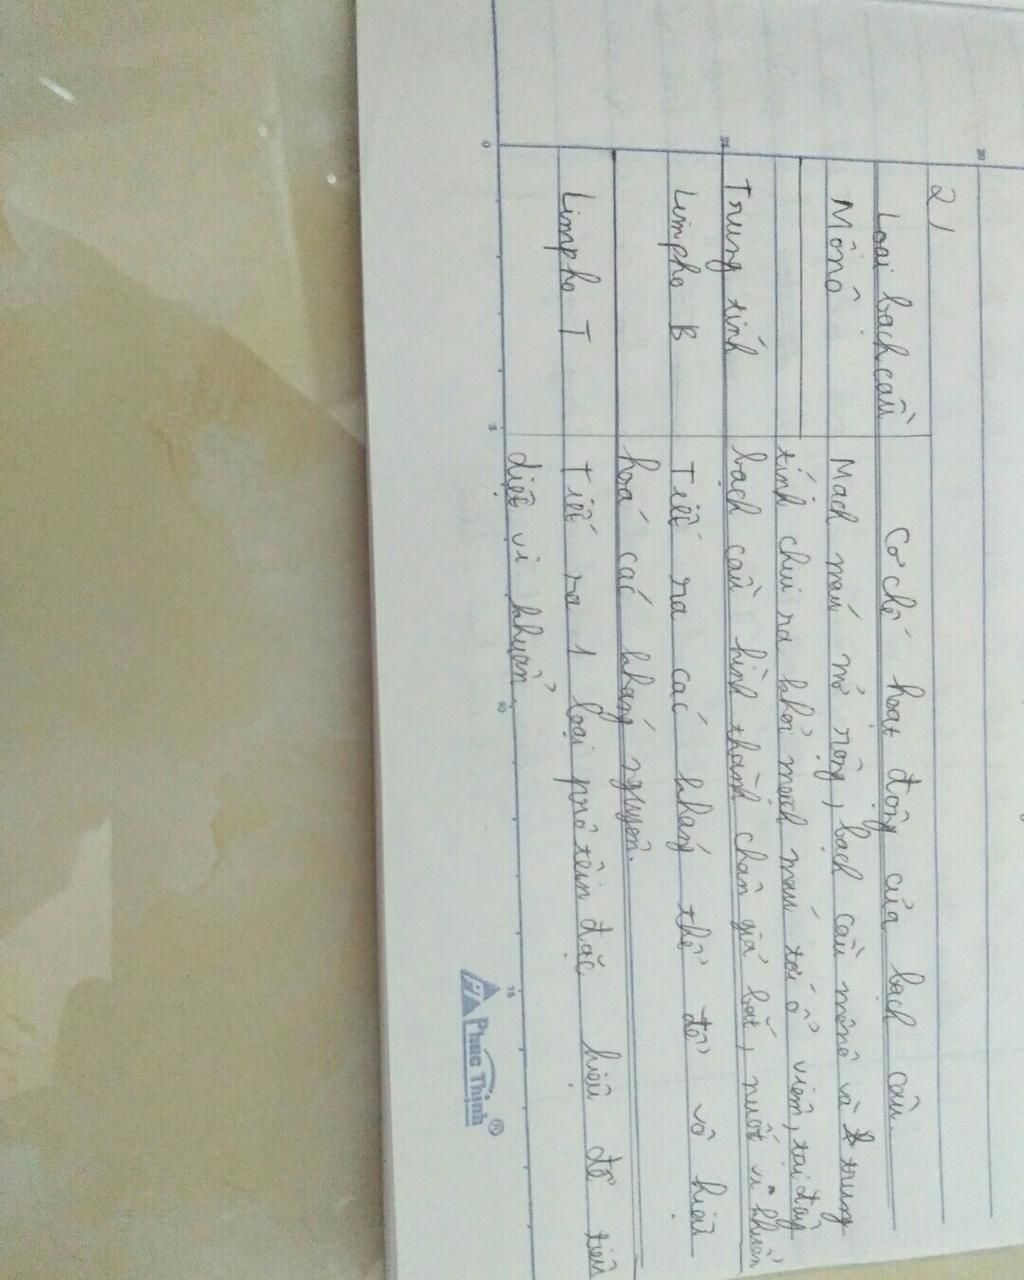 2/
Loại bạch cầu
Cơ chế hoạt động của bạch cầu.
Mônô
Mạch máu nở rộng, bạch cầu mônô và trung
tính chui ra khỏi mạch máu tới ổ viêm, tại đây
Trung tính
bạch cầu hình thành chân giả bắt, nuốt vi khuẩn
Limpho B
Tiết ra các kháng thể để vô hiệu
hoá các kháng nguyên.
Limpho T
Tiết ra 1 loại prôtêin đặc hiệu để tiêu
diệt vi khuẩn
Phuc Thinh®
0
5
10
15
25
30